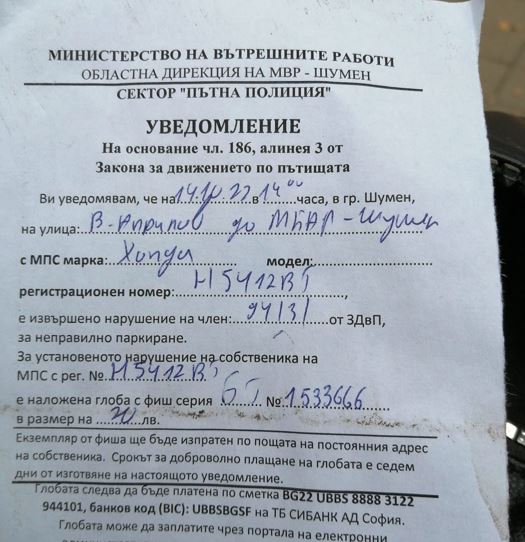 МИНИСТЕРСТВО НА ВЪТРЕШНИТЕ РАБОТИ
ОБЛАСТНА ДИРЕКЦИЯ НА МВР - ШУМЕН
СЕКТОР "ПЪТНА ПОЛИЦИЯ"
УВЕДОМЛЕНИЕ
На основание чл. 186, алинея 3 от
Закона за движението по пътищата
Ви уведомявам, че на 14.10.22 в 14⁰⁰ часа, в гр. Шумен,
на улица: В. Априлов до МБАЛ - Шумен
с МПС марка: Хонда модел:
регистрационен номер: Н5412ВТ,
е извършено нарушение на член: 94/3/ от ЗДвП,
за неправилно паркиране.
За установеното нарушение на собственика на
МПС с рег. № Н5412ВТ
е наложена глоба с фиш серия GT № 1533666
в размер на 20 лв.
Екземпляр от фиша ще бъде изпратен по пощата на постоянния адрес
на собственика. Срокът за доброволно плащане на глобата е седем
дни от изготвяне на настоящото уведомление.
Глобата следва да бъде платена по сметка BG22 UBBS 8888 3122
944101, банков код (BIC): UBBSBGSF на ТБ СИБАНК АД София.
Глобата може да заплатите чрез портала на електронни